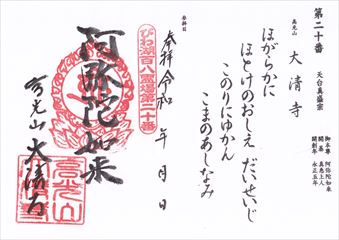 第二十番
天台真盛宗
高光山
大清寺
御本尊 阿弥陀如来
開基 真恵上人
開創年 永正五年
ほがらかに
ほとけのおしえ だいせいじ
このりにゆかん
こまのあしなみ
参拝日
奉拝 令和 年 月 日
びわ湖百八霊場第二十番
阿弥陀如来
高光山 大清寺
高光山